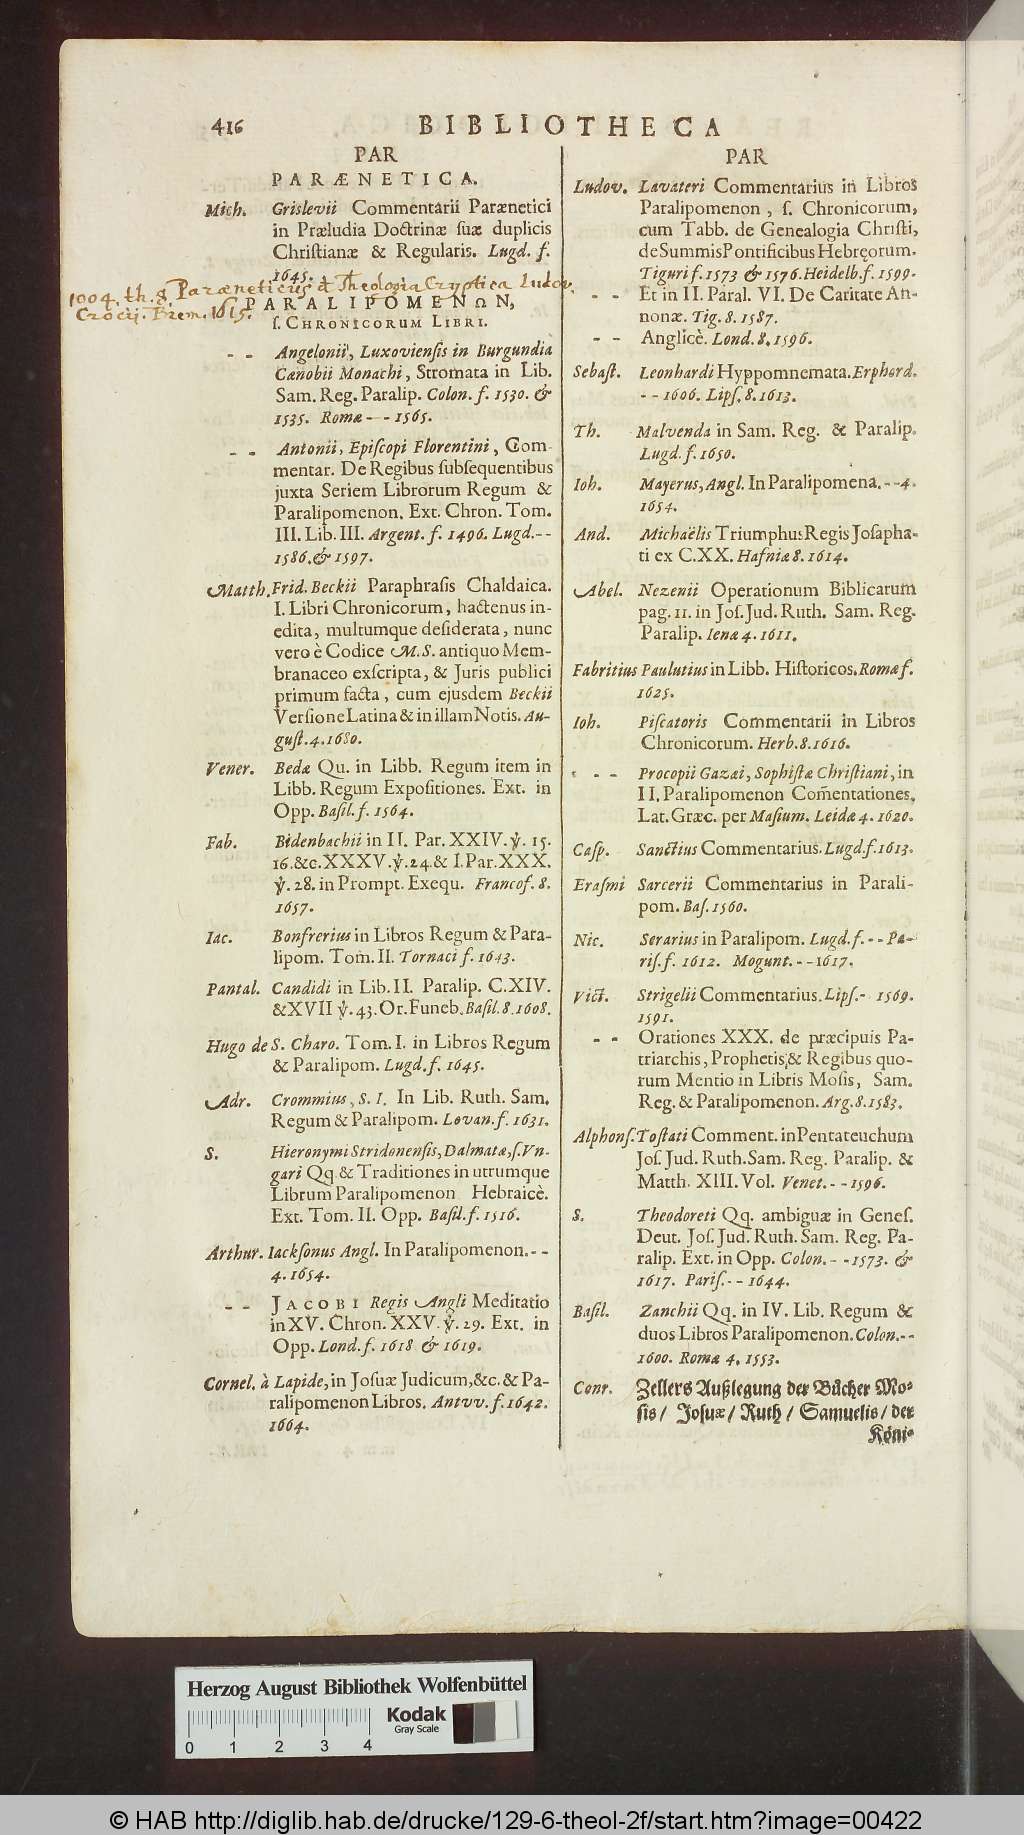 416 BIBLIOTHECA
PAR
PARÆNETICA.
Mich. Grislevii Commentarii Parænetici
in Præludia Doctrinæ ſuæ duplicis
Chriſtianæ & Regularis. Lugd. f.
1645.
1004. th. 8. Paræneticus et Theologia Cryptica Ludov.
Crocij. Brem. 1615.
PARALIPOMENΩN,
ſ. CHRONICORUM LIBRI.
- - Angelonii, Luxovienſis in Burgundia
Cænobii Monachi, Stromata in Lib.
Sam. Reg. Paralip. Colon. f. 1530. &
1535. Romæ - - 1565.
- - Antonii, Epiſcopi Florentini, Com-
mentar. De Regibus ſubſequentibus
juxta Seriem Librorum Regum &
Paralipomenon. Ext. Chron. Tom.
III. Lib. III. Argent. f. 1496. Lugd. - -
1586. & 1597.
Matth. Frid. Beckii Paraphraſis Chaldaica.
I. Libri Chronicorum, hactenus in-
edita, multumque deſiderata, nunc
vero è Codice M.S. antiquo Mem-
branaceo exſcripta, & Juris publici
primum facta, cum ejusdem Beckii
Verſione Latina & in illam Notis. Au-
guſt. 4. 1680.
Vener. Bedæ Qu. in Libb. Regum item in
Libb. Regum Expoſitiones. Ext. in
Opp. Baſil. f. 1564.
Fab. Bidenbachii in II. Par. XXIV. ℣. 15.
16. &c. XXXV. ℣. 24. & I. Par. XXX.
℣. 28. in Prompt. Exequ. Francof. 8.
1657.
Iac. Bonfrerius in Libros Regum & Para-
lipom. Tom. II. Tornaci f. 1643.
Pantal. Candidi in Lib. II. Paralip. C. XIV.
& XVII ℣. 43. Or. Funeb. Baſil. 8. 1608.
Hugo de S. Charo. Tom. I. in Libros Regum
& Paralipom. Lugd. f. 1645.
Adr. Crommius, S. I. In Lib. Ruth. Sam.
Regum & Paralipom. Lovan. f. 1631.
S. Hieronymi Stridonenſis, Dalmatæ, ſ. Vn-
gari Qq. & Traditiones in utrumque
Librum Paralipomenon Hebraicè.
Ext. Tom. II. Opp. Baſil. f. 1516.
Arthur. Iackſonus Angl. In Paralipomenon. - -
4. 1654.
- - JACOBI Regis Angli Meditatio
in XV. Chron. XXV. ℣. 29. Ext. in
Opp. Lond. f. 1618 & 1619.
Cornel. à Lapide, in Joſuæ Judicum, &c. & Pa-
ralipomenon Libros. Antvv. f. 1642.
1664.
PAR
Ludov. Lavateri Commentarius in Libros
Paralipomenon, ſ. Chronicorum,
cum Tabb. de Genealogia Chriſti,
de Summis Pontificibus Hebręorum.
Tiguri f. 1573 & 1576. Heidelb. f. 1599.
- - Et in II. Paral. VI. De Caritate An-
nonæ. Tig. 8. 1587.
- - Anglicè. Lond. 8. 1596.
Sebaſt. Leonhardi Hyppomnemata. Erphord.
- - 1606. Lipſ. 8. 1613.
Th. Malvenda in Sam. Reg. & Paralip.
Lugd. f. 1650.
Ioh. Mayerus, Angl. In Paralipomena. - - 4.
1654.
And. Michaëlis Triumphus Regis Joſapha-
ti ex C. XX. Hafniæ 8. 1614.
Abel. Nezenii Operationum Biblicarum
pag. 11. in Joſ. Jud. Ruth. Sam. Reg.
Paralip. Ienæ 4. 1611.
Fabritius Paulutius in Libb. Hiſtoricos. Romæ f.
1625.
Ioh. Piſcatoris Commentarii in Libros
Chronicorum. Herb. 8. 1616.
- - Procopii Gazai, Sophiſtæ Chriſtiani, in
II. Paralipomenon Com̃entationes.
Lat. Græc. per Maſium. Leidæ 4. 1620.
Caſp. Sanctius Commentarius. Lugd. f. 1613.
Eraſmi Sarcerii Commentarius in Parali-
pom. Baſ. 1560.
Nic. Serarius in Paralipom. Lugd. f. - - Pa-
riſ. f. 1612. Mogunt. - - 1617.
Vict. Strigelii Commentarius. Lipſ. - 1569.
1591.
- - Orationes XXX. de præcipuis Pa-
triarchis, Prophetis, & Regibus quo-
rum Mentio in Libris Moſis, Sam.
Reg. & Paralipomenon. Arg. 8. 1583.
Alphonſ. Toſtati Comment. in Pentateuchum
Joſ. Jud. Ruth. Sam. Reg. Paralip. &
Matth. XIII. Vol. Venet. - - 1596.
S. Theodoreti Qq. ambiguæ in Geneſ.
Deut. Joſ. Jud. Ruth. Sam. Reg. Pa-
ralip. Ext. in Opp. Colon. - - 1573. &
1617. Pariſ. - - 1644.
Baſil. Zanchii Qq. in IV. Lib. Regum &
duos Libros Paralipomenon. Colon. - -
1600. Romæ 4. 1553.
Conr. Zellers Außlegung der Bücher Mo-
ſis / Joſuæ / Ruth / Samuelis / der
Köni-
Herzog August Bibliothek Wolfenbüttel
Kodak
Gray Scale
0 1 2 3 4
© HAB http://diglib.hab.de/drucke/129-6-theol-2f/start.htm?image=00422